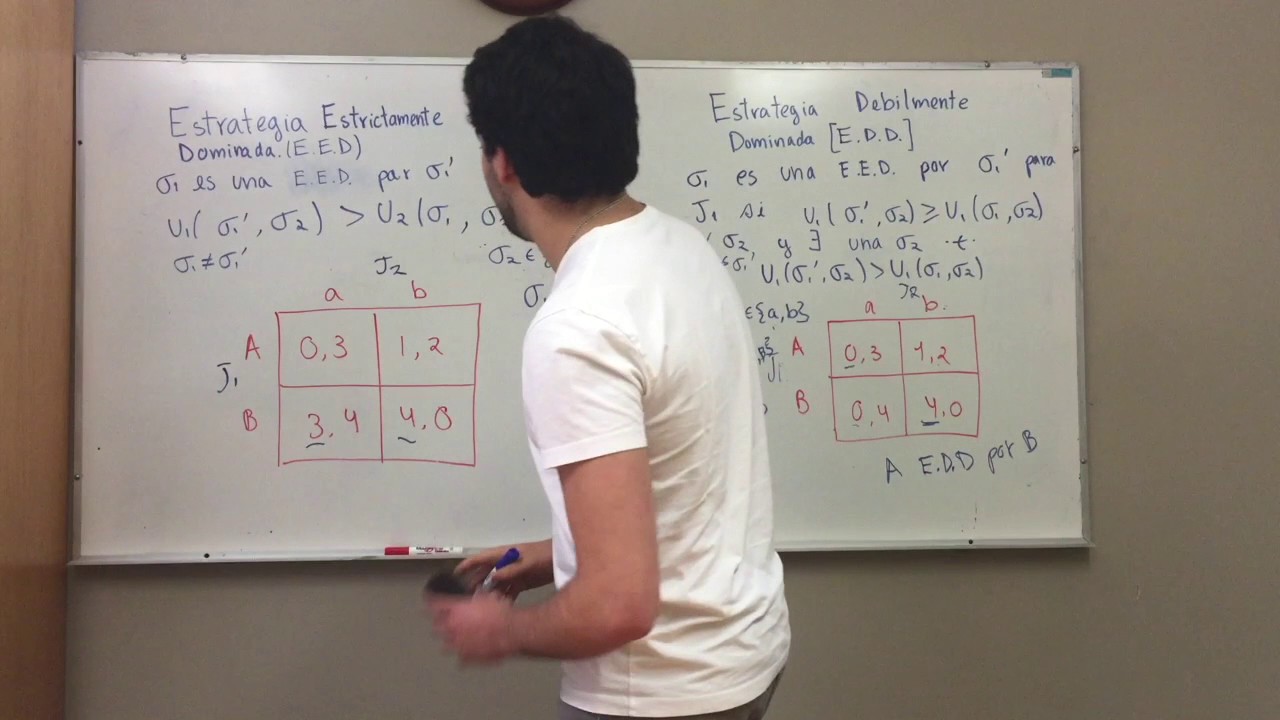 Estrategia Estrictamente
Dominada. (E.E.D)
σ₁ es una E.E.D. par σ₁'
U₁( σ₁', σ₂) > U₂(σ₁, σ
σ₁ ≠ σ₁'
σ₂ ∈
σ₁
J₂
a b
A 0,3 1,2
J₁
B 3,4 4,0
Estrategia Debilmente
Dominada [E.D.D.]
σ₁ es una E.E.D. por σ₁' para
J₁ si U₁(σ₁', σ₂) ≥ U₁(σ₁, σ₂)
σ₂ y ∃ una σ₂ .t.
U₁(σ₁', σ₂) > U₁(σ₁, σ₂)
∈{a,b}
J₂
a b.
A 0,3 1,2
J₁
B 0,4 4,0
A E.D.D por B